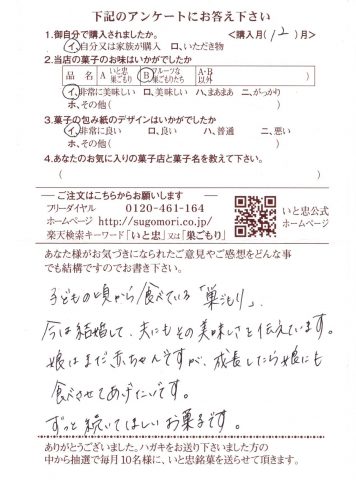 下記のアンケートにお答え下さい
1.御自分で購入されましたか。 <購入月(12)月>
イ.自分又は家族が購入 ロ.いただき物
2.当店の菓子のお味はいかがでしたか
品名 A いと忠巣ごもり B フルーツな巣ごもりたち A・B以外
イ.非常に美味しい ロ.美味しい ハ.まあまあ ニ.がっかり
ホ.その他( )
3.菓子の包み紙のデザインはいかがでしたか
イ.非常に良い ロ.良い ハ.普通 ニ.悪い
ホ.その他( )
4.あなたのお気に入りの菓子店と菓子名を教えて下さい。
( )
ご注文はこちらからお願いします
フリーダイヤル 0120-461-164
ホームページ http://sugomori.co.jp/
楽天検索キーワード「いと忠」又は「巣ごもり」
いと忠公式
ホームページ
あなた様がお気づきになられたご意見やご感想をどんな事
でも結構ですのでお書き下さい。
子どもの頃から食べている「巣ごもり」。
今は結婚して、夫にもその美味しさを伝えています。
娘はまだ赤ちゃんですが、成長したら娘にも
食べさせてあげたいです。
ずっと続いてほしいお菓子です。
ありがとうございました。ハガキをお送り下さいました方の
中から抽選で毎月10名様に、いと忠銘菓を送らせて頂きます。